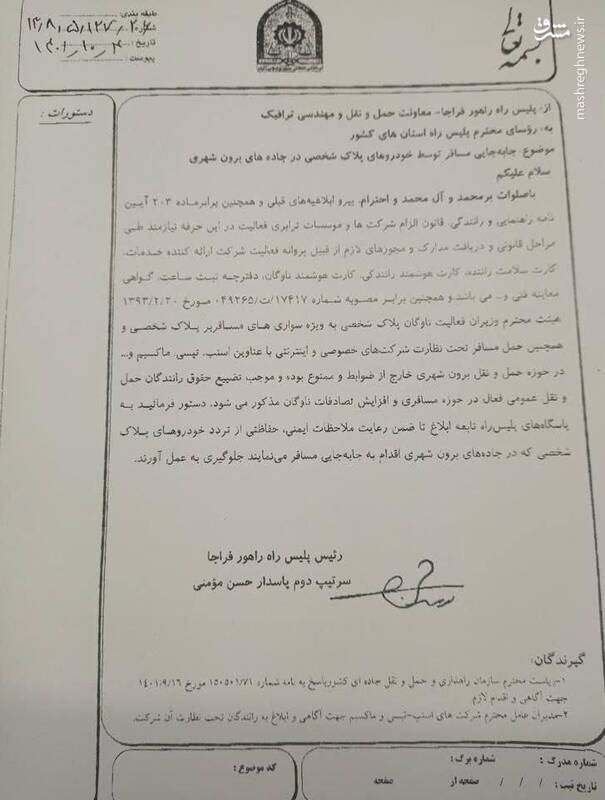 بسمه تعالی
طبقه بندی:
شماره:
تاریخ: ۱۴۰۱/۱۰/۴
پیوست:
مشرق
mashreghnews.ir
دستورات:
از: پلیس راه راهور فراجا- معاونت حمل و نقل و مهندسی ترافیک
به: رؤسای محترم پلیس راه استان های کشور
موضوع: جابه‌جایی مسافر توسط خودروهای پلاک شخصی در جاده های برون شهری
سلام علیکم
باصلوات برمحمد و آل محمد و احترام، پیرو ابلاغیه‌های قبلی و همچنین برابرماده ۲۰۳ آیین
نامه راهنمایی و رانندگی، قانون الزام شرکت ها و موسسات ترابری فعالیت در این حرفه نیازمند طی
مراحل قانونی و دریافت مدارک و مجوزهای لازم از قبیل پروانه فعالیت شرکت ارائه کننده خدمات،
کارت سلامت راننده، کارت هوشمند رانندگی، کارت هوشمند ناوگان، دفترچه ثبت ساعت، گواهی
معاینه فنی و... می باشد و همچنین برابر مصوبه شماره ۱۷۴۱۷/ت/۰۴۹۲۶۵ صورخ ۱۳۹۳/۲/۲۰
هیئت محترم وزیران فعالیت ناوگان پلاک شخصی به ویژه سواری های مسافربر پلاک شخصی و
همچنین حمل مسافر تحت نظارت شرکت‌های خصوصی و اینترنتی با عناوین اسنپ، تپسی، ماکسیم و...
در حوزه حمل و نقل برون شهری خارج از ضوابط و ممنوع بوده و موجب تضییع حقوق رانندگان حمل
و نقل عمومی فعال در حوزه مسافری و افزایش تصادفات ناوگان مذکور می شود، دستور فرمائید به
پاسگاه‌های پلیس‌راه تابعه ابلاغ تا ضمن رعایت ملاحظات ایمنی، حفاظتی از تردد خودروهای پلاک
شخصی که در جاده‌های برون شهری اقدام به جابه‌جایی مسافر می‌نمایند جلوگیری به عمل آورند.
رئیس پلیس راه راهور فراجا
سرتیپ دوم پاسدار حسن مؤمنی
گیرندگان:
۱-ریاست محترم سازمان راهداری و حمل و نقل جاده ای کشورپاسخ به نامه شماره ۱۵۰۵۰۱/۷۱ مورخ ۱۴۰۱/۹/۱۶
جهت آگاهی و اقدام لازم
۲-مدیران عامل محترم شرکت های اسنپ-تپسی و ماکسیم جهت آگاهی و ابلاغ به رانندگان تحت نظارت آن شرکت.
شماره مدرک: شماره برگ: کد موضوع:
تاریخ ثبت: / / / صفحه از صفحه